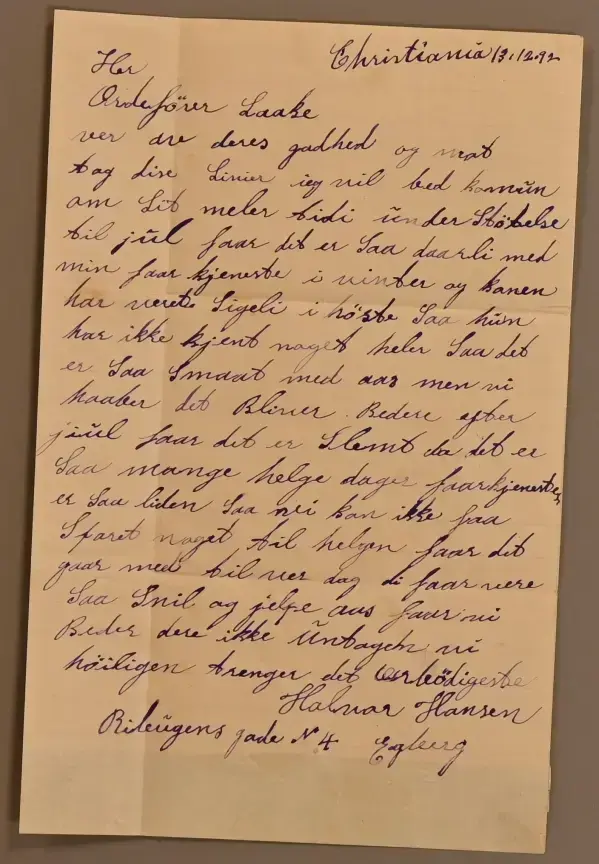 Christiania 13.12.92
Her
Ordefører Laake
ver are deres godhed og mot
tag dise Linier ieg vil bed komün
om Lit meler tidi ünder Støtelse
til jül faar det er Saa daarli med
min faar kjeneste i vinter og konen
har veret Sigeli i høste Saa hün
har ikke kjent noget heler Saa det
er Saa Smaat med aas men vi
haaber det Bliver Bedere efter
jüül faar det er Slemt da det er
Saa mange helge dager faarkjenesten
er Saa liden Saa vi kan ikke faa
Sparet noget til helgen faar det
gaar med til ver dag di faar vere
Saa Snil og jelpe aas faar vi
Beder dere ikke Üntagen vi
höiligen trenger det Ærbödigeste
Halvor Hansen
gade N 4 Egberg